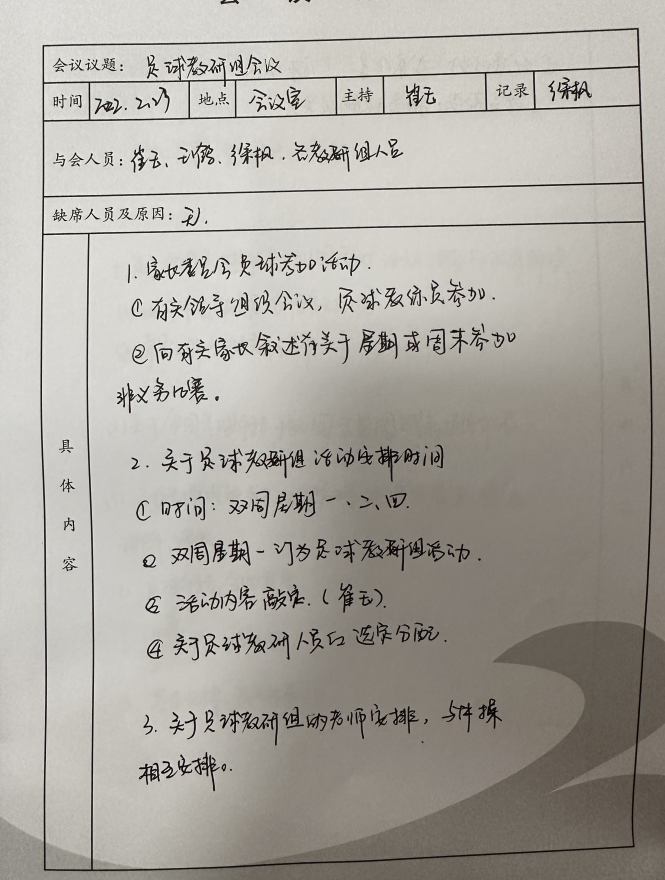 会议议题：足球教研组会议
时间 2022.2.23 地点 会议室 主持 崔玉 记录 徐枫
与会人员：崔玉、刘鹤、徐枫、各教研组人员
缺席人员及原因：无.
具体内容
1. 家长委员会足球参加活动.
① 有关领导组织会议，足球教练员参加.
② 向有关家长叙述有关于星期或周末参加
非义务比赛。
2. 关于足球教研组活动安排时间
① 时间：双周星期一、二、四.
② 双周星期一订为足球教研组活动.
③ 活动内容敲定.（崔玉）.
④ 关于足球教研人员 选定分配.
3. 关于足球教研组的老师安排，与体操
相互安排。